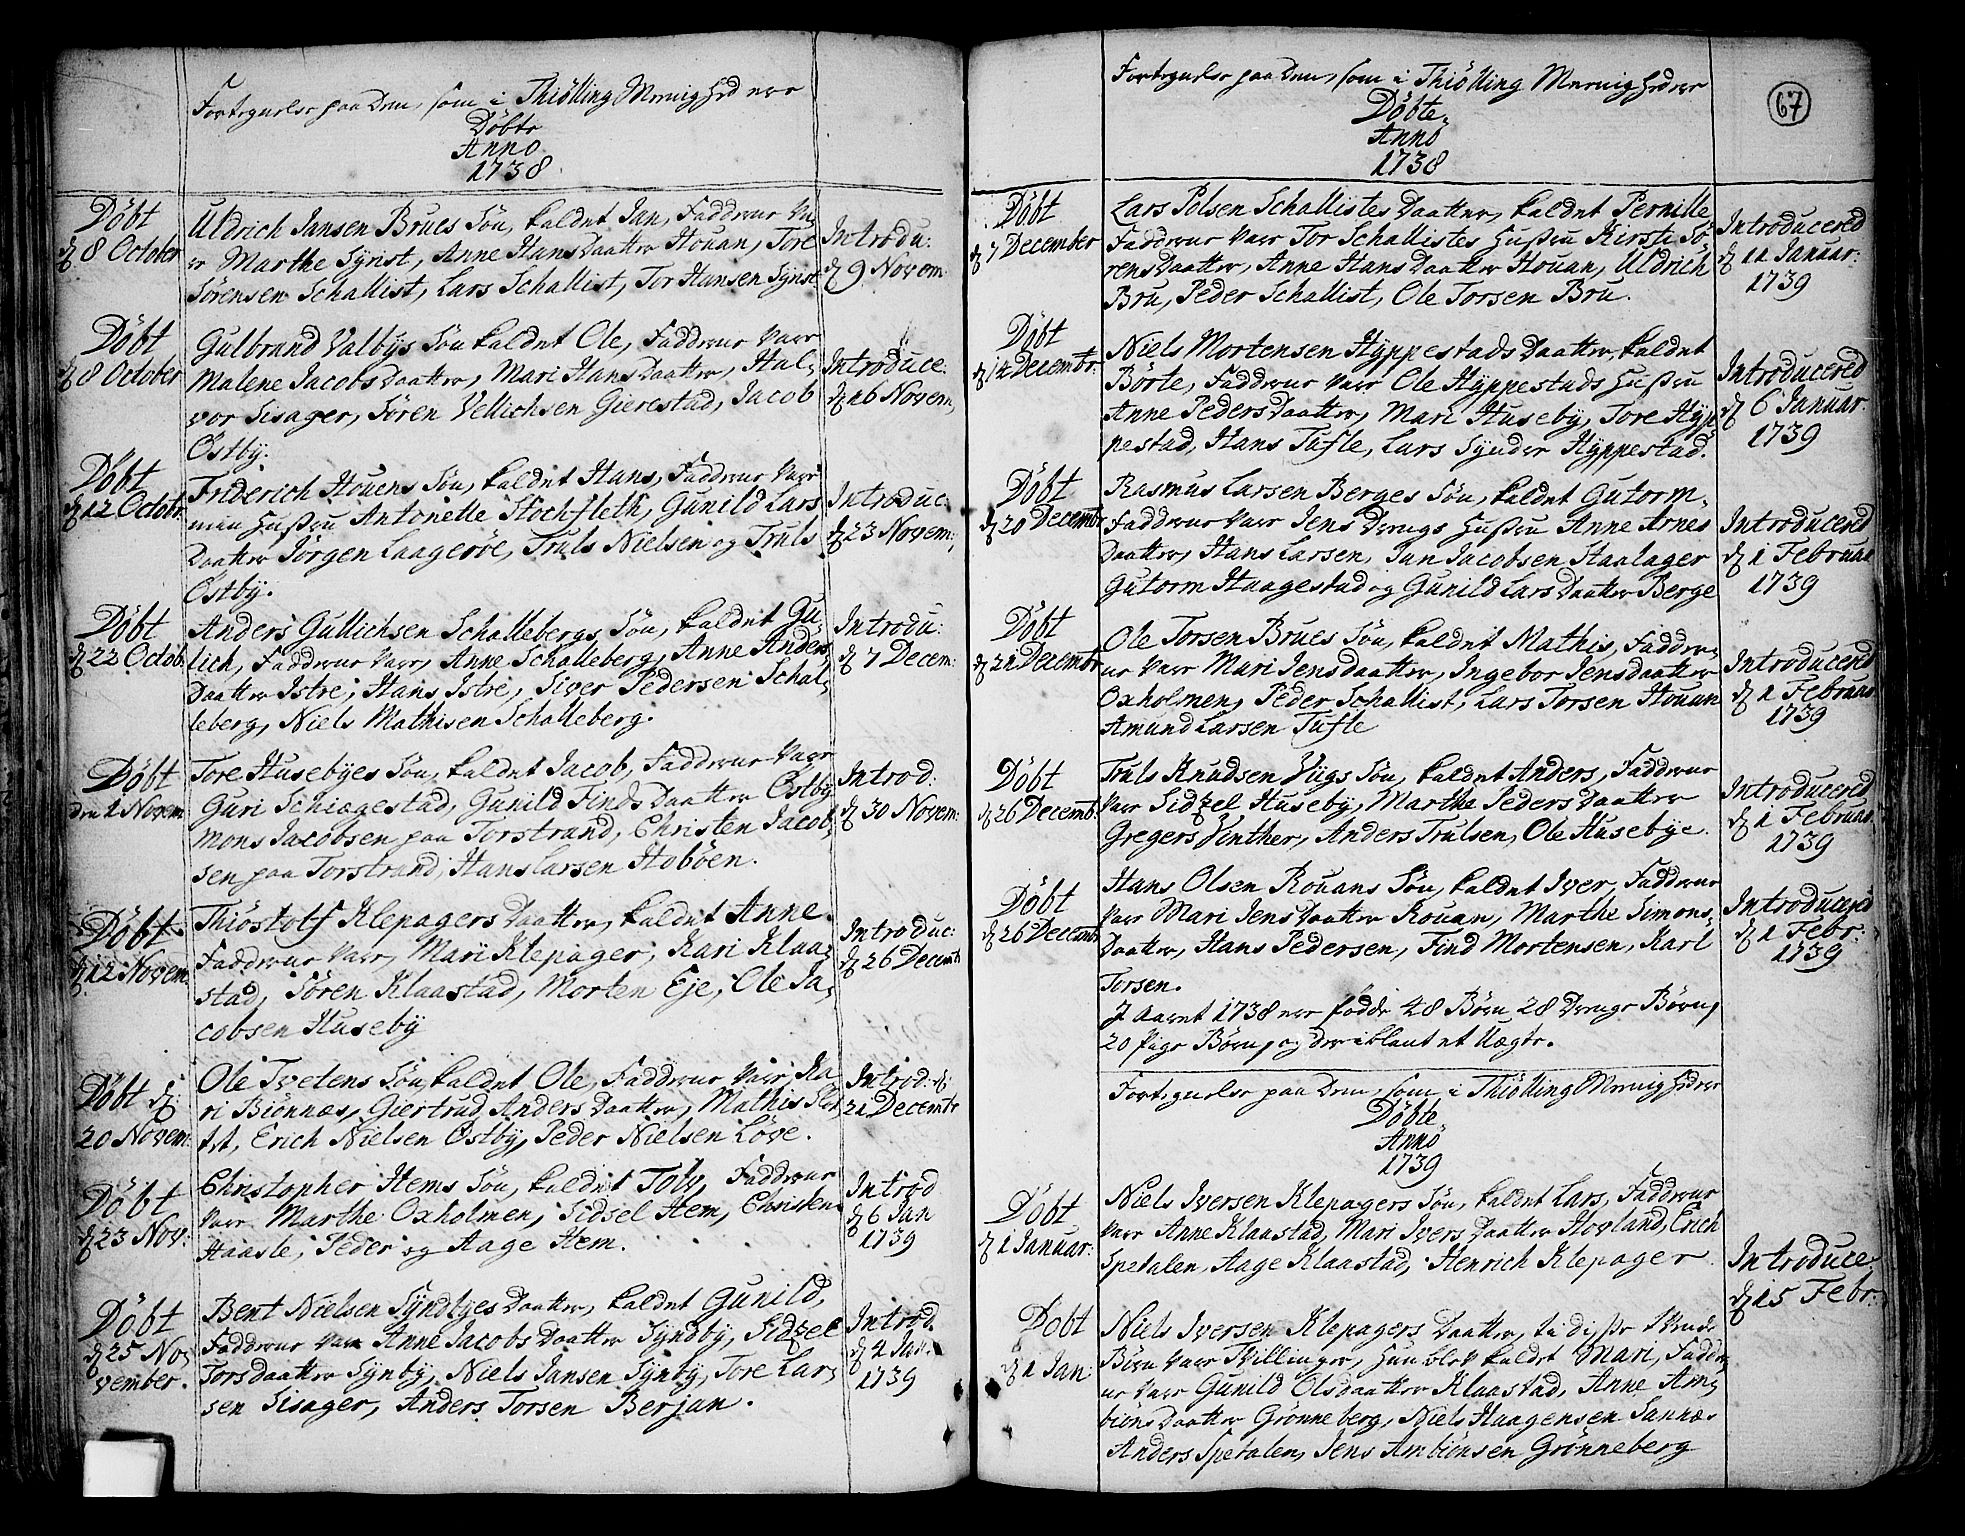 Fortegnelse paa Dem, som i Thiölling Menighed ere
Döbte
Anno
1738
Döbt
d 8 October
Uldrich Jansen Brues Sön, kaldet Jan, Faddrene var
Marthe Synst, Anne HansDaatter Houan, Tore
Sörensen Schallist, Lars Schallist, Tor Hansen Synst
Introdu:
d 9 Novem
Döbt
d 8 October
Gulbrand Valbys Sön kaldet Ole, Faddrene var
Malene JacobsDaatter, Mari HansDaatter, Hal,
vor Sisager, Sören Vellichsen Gierestad, Jacob
Östby.
Introduce:
d 16 Novem,
Döbt
d 12 Octobr
Friderich Houens Sön, kaldet Hans, Faddrene var
min Hustru Antonelle Stochfleth, Gunild Lars
Daatter Jörgen Laageröe, Truls Nielsen og Truls
Östby.
Introduc:
d 23 Novem:
Döbt
d 22 Octob:
Anders Gullichsen Schallebergs Sön, kaldet Gu,
lich, Faddrene var, Anne Schalleberg, Anne Anders
Daatter Istre, Hans Istre, Siver Pedersen Schal,
leberg, Niels Mathisen Schalleberg.
Introdu:
d 7 Decem:
Döbt
den 1 Novem
Tore Husebyes Sön, kaldet Jacob, Faddrene var
Guri Schiægestad, Gunild FindsDaatter Östby
Mons Jacobsen paa Torstrand, Christen Jacob,
sen paa Torstrand, Hans Larsen Hoböen.
Introd:
d 30 Novem:
Döbt
d 12 Novem:
Thiöstolf Klepagers Daatter, kaldet Anne.
Faddrene var, Mari Klepager, Kari Klaa,
stad, Sören Klaastad, Morten Eje, Ole Ja,
cobsen Huseby
Introduc:
d 26 Decemb
Döbt d:
20 Novem:
Ole Tvetens Sön, kaldet Ole, Faddrene var, Ka,
ri Biönnæs, Giertrud AndersDaatter, Mathis Slet
tet, Erich Nielsen Östby, Peder Nielsen Löve.
Introd: d:
21 Decembr
Döbt
d 23 Nov:
Christopher Hems Sön, kaldet Tolv, Faddrene
var Marthe Oxholmen, Sidsel Hem, Christen
Haasle, Peder og Aage Hem.
Introd
d 6 Jan
1739
Döbt
d 25 No,
vember.
Bent Nielsen Syndbyes Daatter, kaldet Gunild,
Faddrene var Anne JacobsDaatter Syndby, Sidzel
Torsdaatter Synby, Niels Jansen Synby, Tore Lar,
sen Sisager, Anders Torsen Berjan.
Introd.
d 4 Jan.
1739
67
Fortegnelse paa Dem, som i Thiölling Menighed ere
Döbte
Anno
1738
Döbt
d 7 December
Lars Polsen Schallistes Daatter, kaldet Pernille
Faddrene var Tor Schallistes Hustru Kirsti Sö,
rensDaatter, Anne HansDaatter Houan, Uldrich
Bru, Peder Schallist, Ole Torsen Bru.
Introducered
d 11 Januar:
1739
Döbt
d 14 Decembr:
Niels Mortensen Hyppestads Daatter, kaldet
Börte, Faddrene var Ole Hyppestads Hustru
Anne PedersDaatter, Mari Huseby, Tore Hyp
pestad, Hans Tufte, Lars Syndre Hyppestad.
Introducered
d 6 Januar.
1739
Döbt
d 20 Decembr
Rasmus Larsen Berges Sön, kaldet Gutorm.
Faddrene var Jens Drengs Hustru Anne Arnes
Daatter, Hans Larsen, Jan Jacobsen Haalager
Gutorm Haagestad og Gunild LarsDaatter Berge
Introducered
d 1 Februar
1739
Döbt
d 21 Decembr
Ole Torsen Brues Sön, kaldet Mathis, Faddre,
ne var Mari Jensdaatter, Ingebor Jensdaatter
Oxholmen, Peder Schallist, Lars Torsen Houan
Amund Larsen Tufte
Introducered
d 1 Februar
1739
Döbt
d 26 Decemb:
Truls Knudsen Viigs Sön, kaldet Anders, Faddrene
var Sidzel Huseby, Marthe PedersDaatter
Gregers Vinther, Anders Trulsen, Ole Husebye.
Introducered
d 1 Februar.
1739
Döbt
d 26 Decembr
Hans Olsen Rouans Sön, kaldet Iver, Faddrene
var Mari JensDaatter Rouan, Marthe Simons,
Daatter, Hans Pedersen, Find Mortensen, Karl
Torsen.
Introducered
d 1 Febr:
1739
J Aaret 1738 ere födde 48 Börn 28 Drenge Börn,
20 Pige Börn, og der iblant et Uægte.
Fortegnelse paa Dem, som i Thiölling Menighed ere
Döbte
Anno
1739
Döbt
d 1 Januar:
Niels Iversen Klepagers Sön, kaldet Lars, Faddrene
var Anne Klaastad, Mari IversDaatter Hovland, Erich
Spetalen, Aage Klaastad, Henrich Klepager
Introduce:
d 15 Febr:
Döbt
d 1 Jan:
Niels Iversen Klepagers Daatter, ti disse tvende
Börn var Tvillinger, hun blev kaldet Mari, Faddre
ne var Gunild Olsdaatter Klaastad, Anne Am,
biönsDaatter Grönneberg, Niels Haagensen Sannæs
Anders Spetalen, Jens Ambiönsen Grönneberg